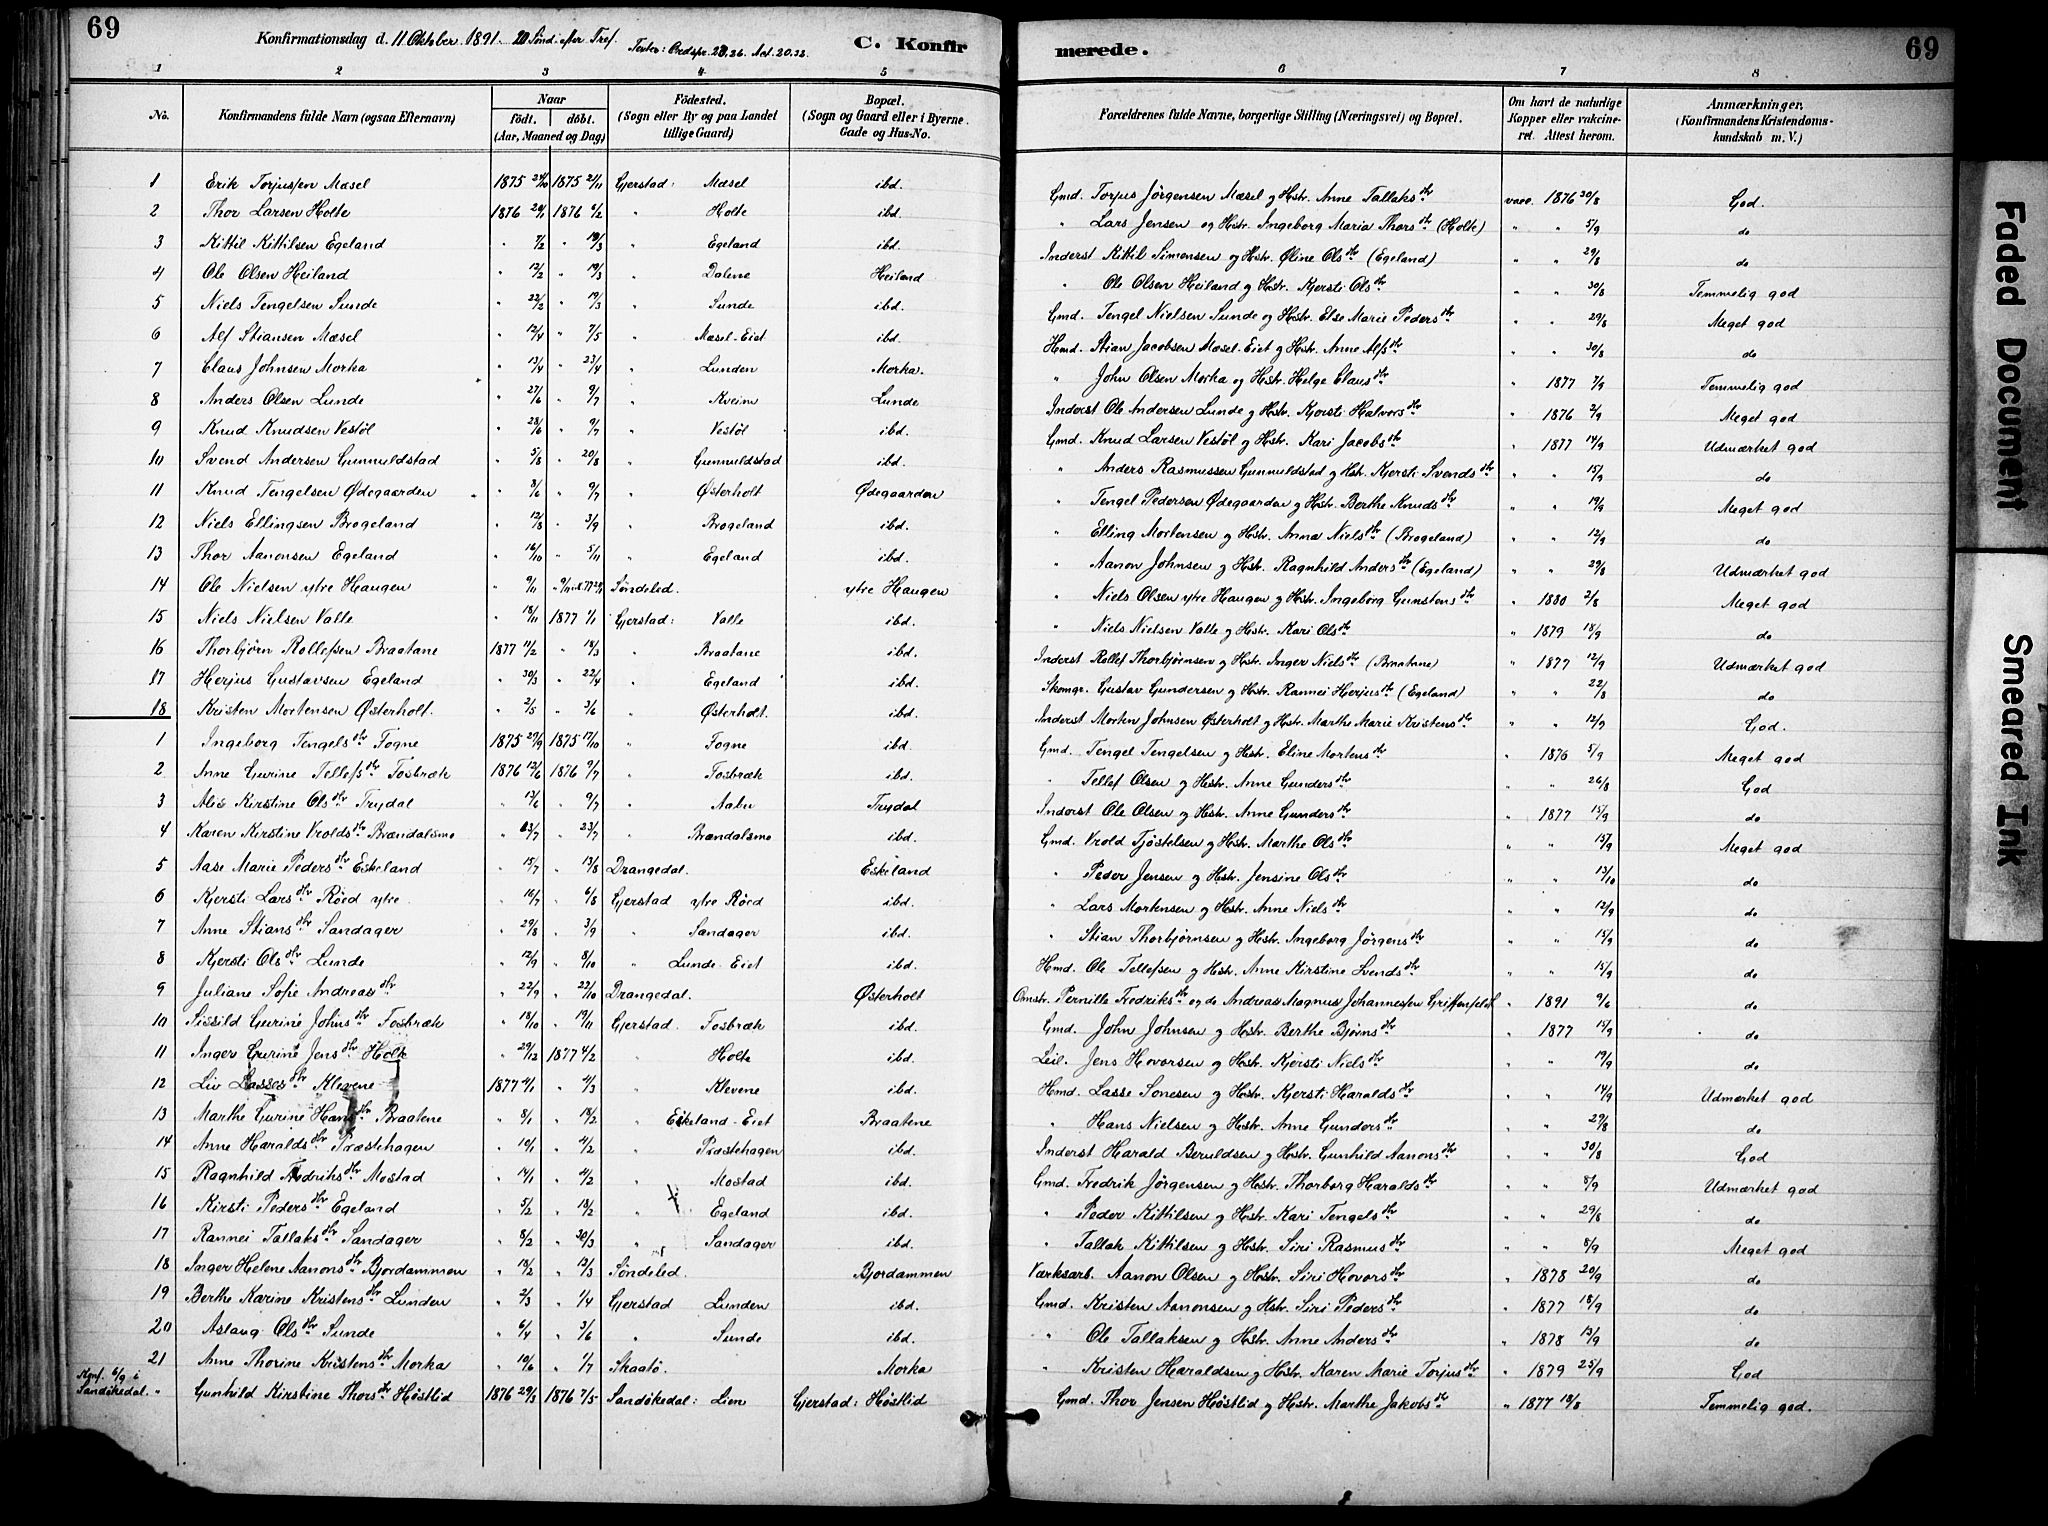 69
Konfirmationsdag d. 11 Oktober 1891. 20 Sönd. efter Tref.
Texter: Ordspr. 23.26. Act. 20.32.
C. Konfir
merede.
69
1 2 3 4 5 6 7 8
No. Konfirmandens fulde Navn (ogsaa Efternavn) Naar födt. döbt. (Aar, Maaned og Dag) Födested. (Sogn eller By og paa Landet tillige Gaard) Bopæl. (Sogn og Gaard eller i Byerne Gade og Hus-No. Forældrenes fulde Navne, borgerlige Stilling (Næringsvei) og Bopæl. Om havt de naturlige Kopper eller vakcineret. Attest herom. Anmærkninger. (Konfirmandens Kristendomskundskab m. V.)
1 Erik Torjussen Mæsel 1875 24/10 1875 21/11 Gjerstad: Mæsel ibd. Gmd. Torjus Jörgensen Mæsel og Hstr. Anne Tallaksdtr vacc. 1876 30/8 God.
2 Thor Larsen Holte 1876 20/1 1876 6/2 " Holte ibd. " Lars Jensen og Hstr. Ingeborg Maria Thorsdtr (Holte) " " 5/9 do
3 Kittil Kittilsen Egeland " 7/2 " 19/3 " Egeland ibd. Inderst Kittil Simonsen og Hstr. Øline Olsdtr (Egeland) " " 29/8 do
4 Ole Olsen Heiland " 12/2 " 19/3 " Dalene Heiland " Ole Olsen Heiland og Hstr. Kjersti Olsdtr " " 30/8 Temmelig god
5 Niels Tengelsen Sunde " 22/2 " 19/3 " Sunde ibd. Gmd. Tengel Nielsen Sunde og Hstr. Else Marie Pedersdtr " " 29/8 Meget god
6 Alf Stiansen Mæsel " 12/4 " 7/5 " Mæsel-Eiet ibd. Hmd. Stian Jacobsen Mæsel-Eiet og Hstr. Anne Alfsdtr " " 30/8 do
7 Claus Johnsen Morka " 13/4 " 23/4 " Lunden Morka. " John Olsen Morka og Hstr. Helge Clausdtr " 1877 7/9 Temmelig god
8 Anders Olsen Lunde " 27/6 " 9/7 " Kveim Lunde Inderst Ole Andersen Lunde og Hstr. Kjersti Halvorsdtr " 1876 2/9 Meget god
9 Knud Knudsen Vestöl " 28/6 " 9/7 " Vestöl ibd. Gmd. Knud Larsen Vestöl og Hstr. Kari Jacobsdtr " 1877 14/9 Udmærket god
10 Svend Andersen Gunnuldstad " 5/8 " 20/8 " Gunnuldstad ibd. " Anders Rasmussen Gunnuldstad og Hstr. Kjersti Svendsdtr " " 15/9 do
11 Knud Tengelsen Ødegaarden " 3/6 " 9/7 " Østerholt Ødegaarden " Tengel Pedersen Ødegaarden og Hstr. Berthe Knudsdtr " " 19/9 Meget god
12 Niels Ellingsen Brogeland " 12/8 " 3/9 " Brogeland ibd. " Elling Mortensen og Hstr. Anna Nielsdtr (Brogeland) " " 12/9 do
13 Thor Aanonsen Egeland " 16/10 " 5/11 " Egeland ibd. " Aanon Johnsen og Hstr. Ragnhild Andersdtr (Egeland) " " 29/8 Udmærket god
14 Ole Nielsen ytre Haugen " 9/11 " Söndeled. ytre Haugen " Niels Olsen ytre Haugen og Hstr. Ingeborg Gunstensdtr " 1880 2/8 Meget god
15 Niels Nielsen Valle " 18/11 1877 1/1 Gjerstad: Valle ibd. " Niels Nielsen Valle og Hstr. Kari Olsdtr " 1879 18/9 do
16 Thorbjörn Rollefsen Braatane 1877 11/2 " 18/3 " Braatane ibd. Inderst Rollef Thorbjörnsen og Hstr. Inger Nielsdtr (Braatane) " 1877 12/9 Udmærket god
17 Herjus Gustavsen Egeland " 30/3 " 22/4 " Egeland ibd. Skomgr. Gustav Gundersen og Hstr. Rannei Herjusdtr (Egeland) " " 22/8 do
18 Kristen Mortensen Østerholt. " 2/5 " 3/6 " Østerholt. ibd. Inderst Morten Johnsen Østerholt og Hstr. Marthe Marie Kristensdtr " " 12/9 God.
1 Ingeborg Tengelsdtr Fogne 1875 29/9 1875 17/10 " Fogne ibd. Gmd. Tengel Tengelsen og Hstr. Eline Mortensdtr " 1876 5/9 Meget god
2 Anne Gurine Tellefsdtr Fosbræk 1876 12/6 1876 9/7 " Fosbræk ibd. " Tellef Olsen og Hstr. Anne Gundersdtr " " 26/8 God
3 Alis Kirstine Olsdtr Trydal " 13/6 " 9/7 " Aabu Trydal Inderst Ole Olsen og Hstr. Anne Gundersdtr " 1877 15/9 do
4 Karen Kirstine Vroldsdtr Brændalsmo " 23/7 " 23/7 " Brændalsmo ibd. Gmd. Vrold Tjöstelsen og Hstr. Marthe Olsdtr " " 15/9 Meget god
5 Aase Marie Pedersdtr Eskeland " 15/7 " 13/8 Drangedal. Eskeland " Peder Jensen og Hstr. Jensine Olsdtr " " 13/10 do
6 Kjersti Larsdtr Röed ytre " 16/7 " 6/8 Gjerstad ytre Röed ibd. " Lars Mortensen og Hstr. Anne Nielsdtr " " 12/9 do
7 Anne Stiansdtr Sandager " 29/8 " 3/9 " Sandager ibd. " Stian Thorbjørnsen og Hstr. Ingeborg Jörgensdtr " " 15/9 do
8 Kjersti Olsdtr Lunde " 12/9 " 8/10 " Lunde-Eiet ibd. Hmd. Ole Tellefsen og Hstr. Anne Kirstine Svendsdtr " " 15/9 do
9 Juliane Sofie Andreasdtr " 22/9 " 22/10 Drangedal. Østerholt Omstr. Pernille Fredriksdtr og do Andreas Magnus Johannessen Griffenfeldt " 1891 9/6 do
10 Sissild Gurine Johnsdtr Fosbræk " 18/10 " 19/11 Gjerstad. Fosbræk ibd. Gmd. John Johnsen og Hstr. Berthe Bjørnsdtr " 1877 15/9 do
11 Inger Gurine Jensdtr Holte " 29/12 1877 4/2 " Holte ibd. Leil. Jens Hovorsen og Hstr. Kjersti Nielsdtr " " 19/9 do
12 Liv Lassesdtr Klevene 1877 4/1 " 4/3 " Klevene ibd. Hmd. Lasse Sonesen og Hstr. Kjersti Haraldsdtr " " 14/9 Udmærket god
13 Marthe Gurine Hansdtr Braatene " 8/1 " 18/2 " Eskeland-Eiet Braatene " Hans Nielsen og Hstr. Anne Gundersdtr " " 29/8 do
14 Anne Haraldsdtr Præstehagen " 10/1 " 4/2 " Præstehagen ibd. Inderst Harald Beruldsen og Hstr. Gunhild Aanonsdtr " " 30/8 God
15 Ragnhild Fredriksdtr Mostad " 14/1 " 4/2 " Mostad ibd. Gmd. Fredrik Jörgensen og Hstr. Thorborg Haraldsdtr " " 8/9 Udmærket god
16 Kirsti Pedersdtr Egeland " 5/2 " 18/2 " Egeland ibd. " Peder Kittilsen og Hstr. Kari Tengelsdtr " " 29/8 do
17 Rannei Tallaksdtr Sandager " 8/2 " 30/3 " Sandager ibd. " Tallak Kittilsen og Hstr. Siri Rasmusdtr " " 8/9 Meget god
18 Inger Helene Aanonsdtr Bjordammen " 18/2 " 13/3 Söndeled. Bjordammen Værksarb. Aanon Olsen og Hstr. Siri Hovorsdtr " 1878 20/9 do
19 Berthe Karine Kristensdtr Lunden " 2/3 " 1/4 Gjerstad Lunden ibd. Gmd. Kristen Aanonsen og Hstr. Siri Pedersdtr " 1877 18/9 do
20 Aslaug Olsdtr Sunde " 6/4 " 3/6 " Sunde ibd. " Ole Tallaksen og Hstr. Anne Andersdtr " 1878 13/9 do
21 Anne Thorine Kristensdtr Morka " 10/6 " 1/7 Skaatö. Morka " Kristen Haraldsen og Hstr. Karen Marie Torjusdtr " 1879 25/9 God
Konf. 6/9 i
Sandökedal. " Gunhild Kirstine Thorsdtr Höstlid 1876 29/3 1876 7/5 Sandökedal: Lien Gjerstad: Höstlid Gmd. Thor Jensen Höstlid og Hstr. Marthe Jakobsdtr " 1877 18/8 Temmelig god.
Faded Document
Smeared Ink